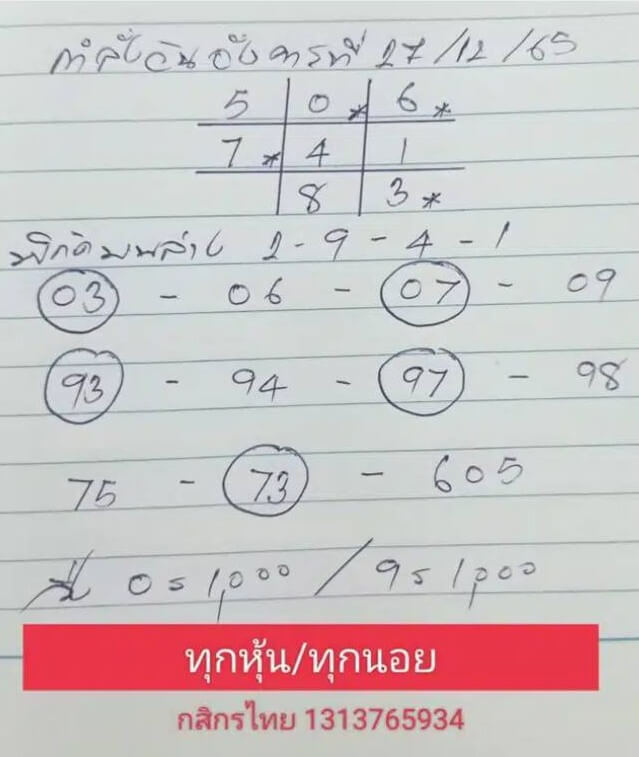 กำลังวันอังคารที่ 27/12/65
5 0* 6*
7* 4 1
8 3*
2-9-4-1
03 - 06 - 07 - 09
93 - 94 - 97 - 98
75 - 73 - 605
0 = 1,000 / 9 = 1,000
ทุกหุ้น/ทุกนอย
กสิกรไทย 1313765934